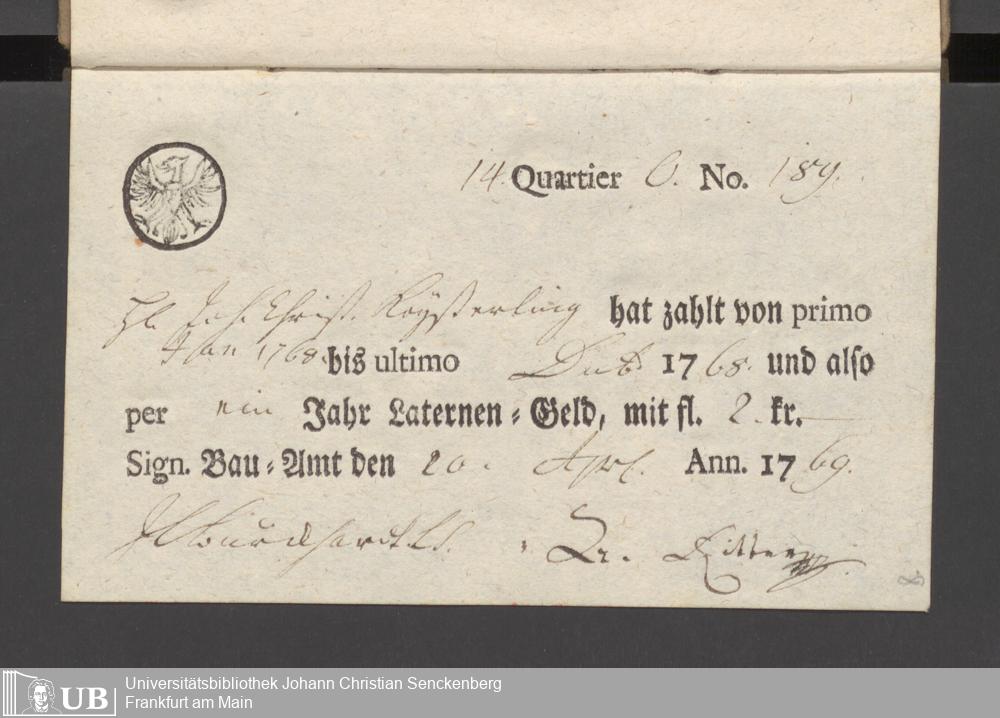 14. Quartier O. No. 189.
Hl. Joh. Christ. Köyßerling hat zahlt von primo
Jan 1768. bis ultimo 1768. und also
per ein Jahr Laternen-Geld, mit fl. 2. kr. —
Sign. Bau-Amt den 20. Aprl. Ann. 1769.
Ritter
UB
Universitätsbibliothek Johann Christian Senckenberg
Frankfurt am Main